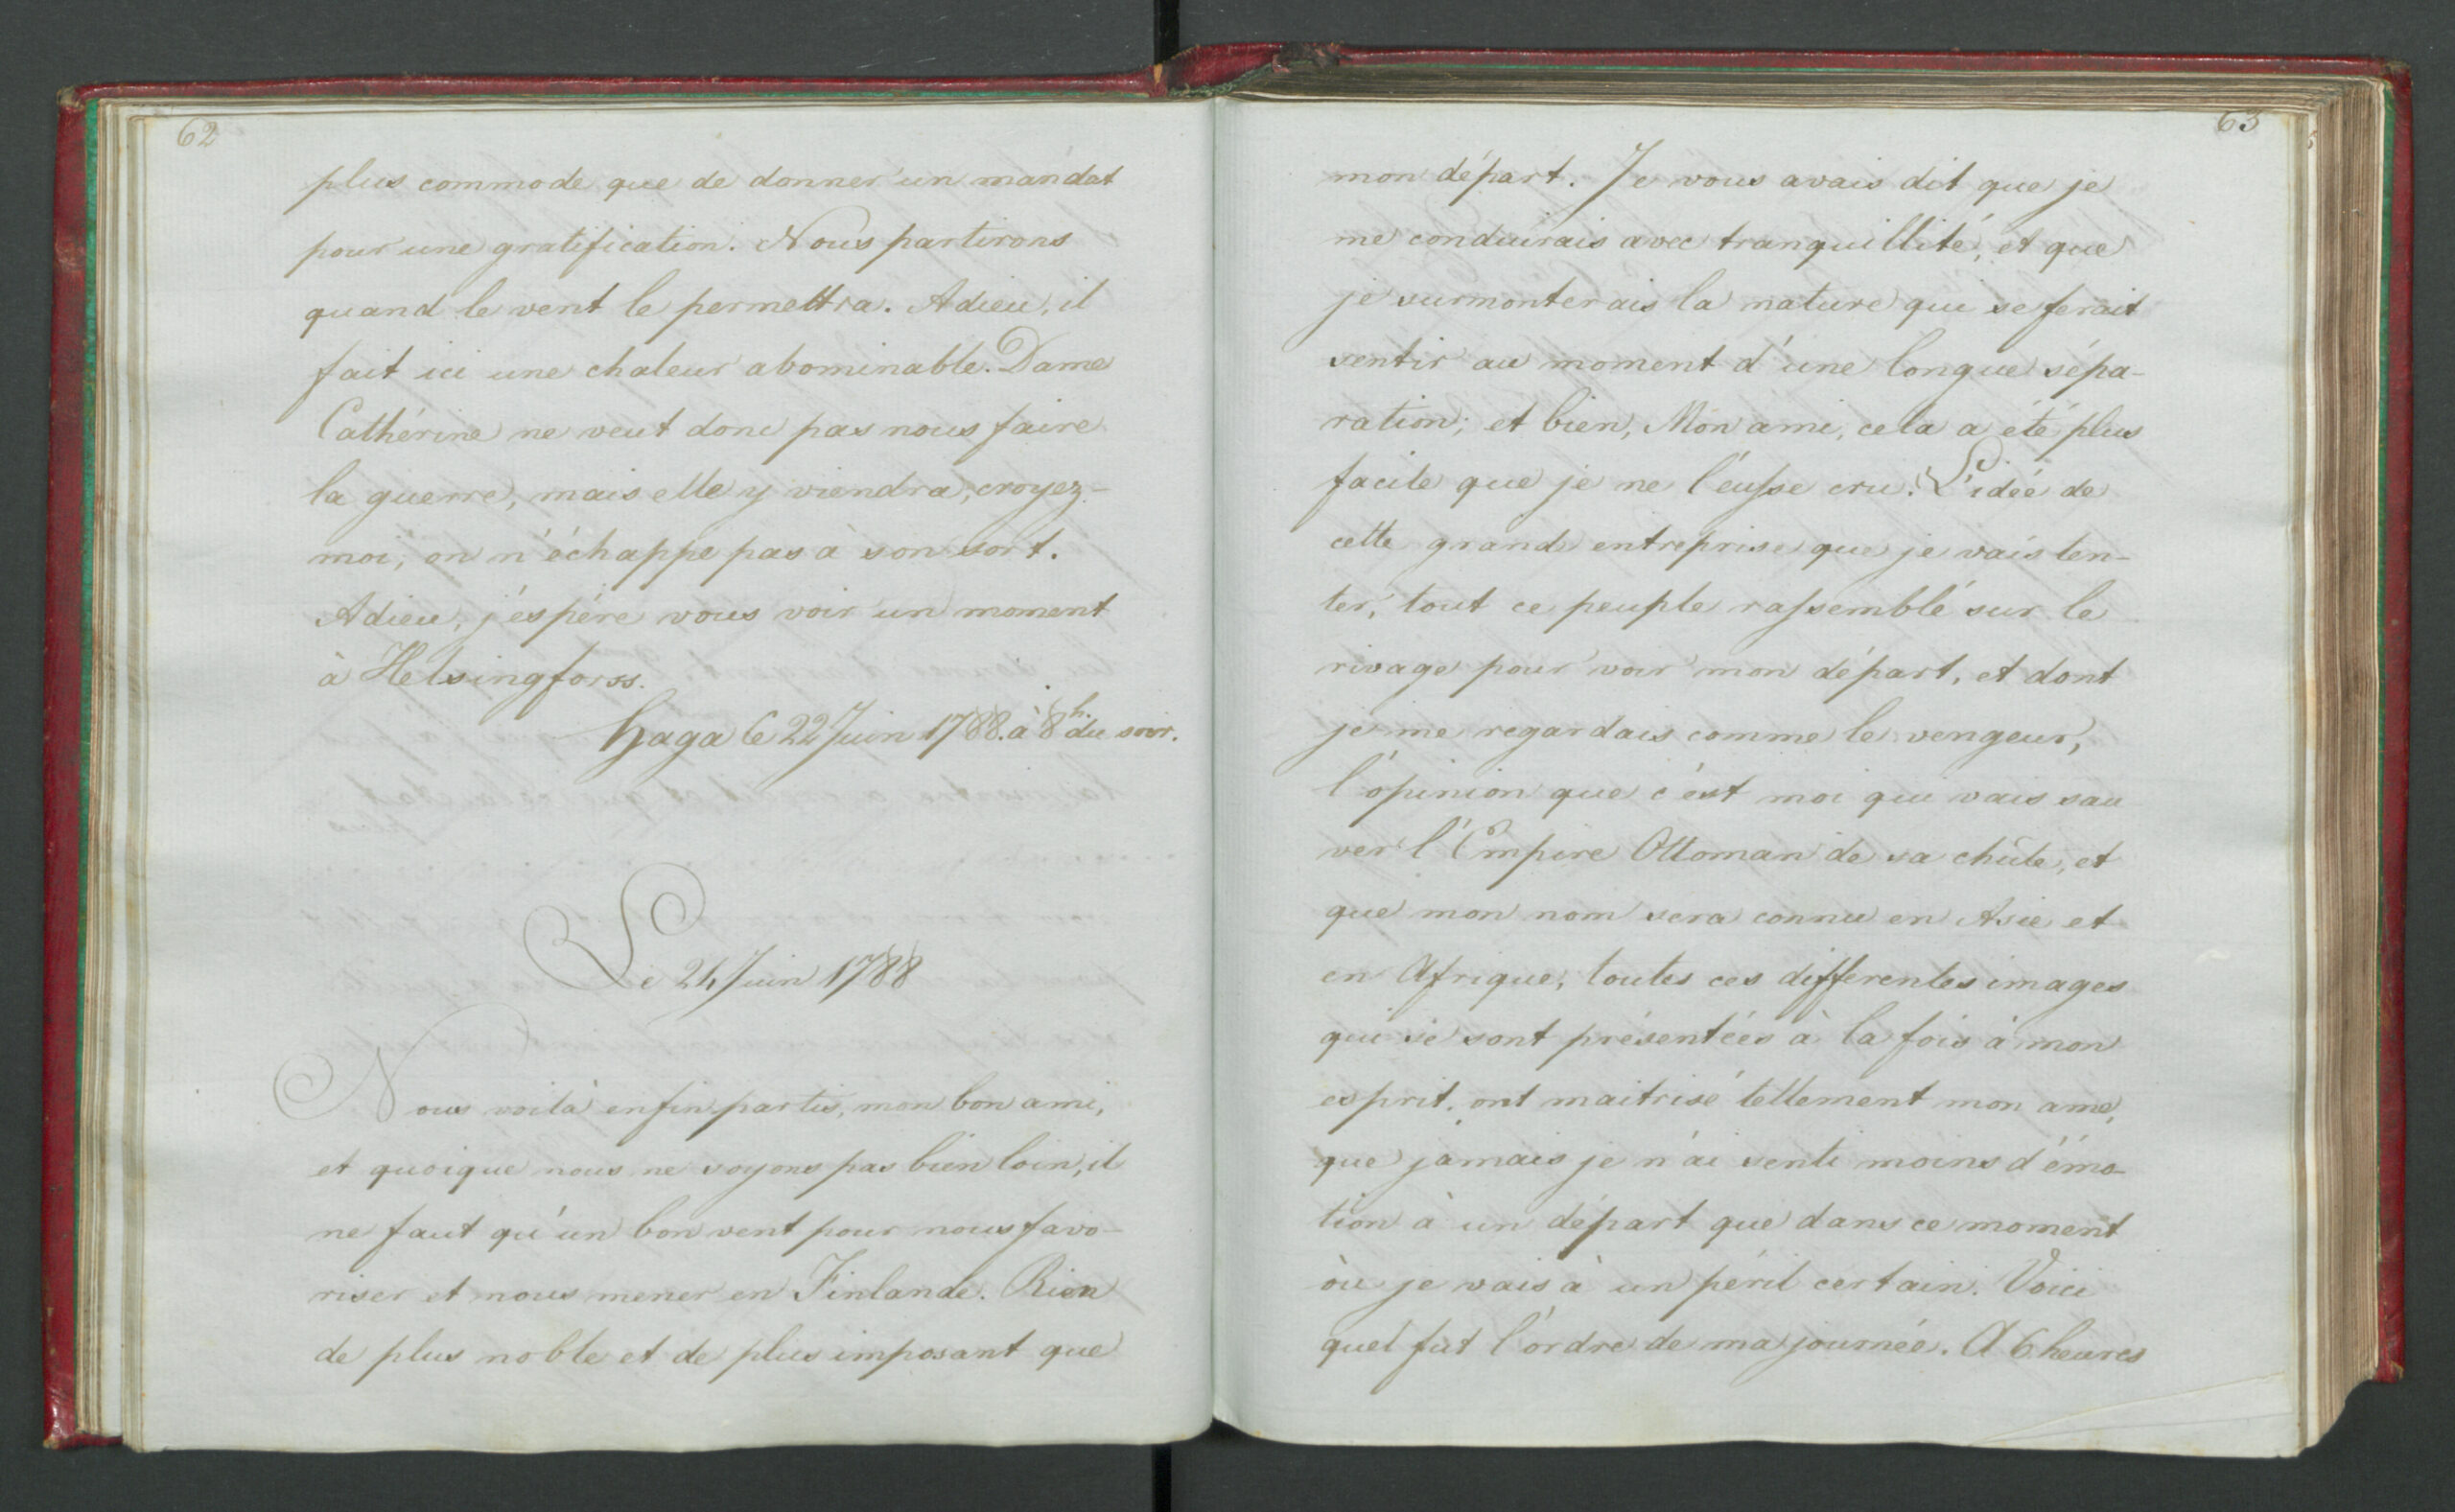 62
plus commode que de donner un mandat
pour une gratification. Nous partirons
quand le vent le permettra. Adieu, il
fait ici une chaleur abominable. Dame
Cathérine ne veut donc pas nous faire
la guerre, mais elle y viendra, croyez-
moi, on n'échappe pas à son sort.
Adieu, j'éspére vous voir un moment
à Helsingforss.
Haga le 22 Juin 1788. à 8h. du soir.
Le 24 Juin 1788
Nous voilà enfin partis, mon bon ami,
et quoique nous ne soyons pas bien loin, il
ne faut qu'un bon vent pour nous favo-
riser et nous mener en Finlande. Rien
de plus noble et de plus imposant que
63
mon départ. Je vous avais dit que je
me conduirais avec tranquillité, et que
je surmonterais la nature qui se ferait
sentir au moment d'une longue sépa-
ration; et bien, Mon ami, cela a été plus
facile que je ne l'eusse cru. L'idée de
cette grand entreprise que je vais ten-
ter, tout ce peuple rassemblé sur le
rivage pour voir mon départ, et dont
je me regardais comme le vengeur,
l'opinion que c'est moi qui vais sau
ver l'Empire Ottoman de sa chûte, et
que mon nom sera connu en Asie et
en Afrique, toutes ces differentes images
qui se sont présentées à la fois à mon
esprit, ont maitrisé tellement mon ame,
que jamais je n'ai senti moins d'émo-
tion à un départ que dans ce moment
où je vais à un péril certain. Voici
quel fut l'ordre de ma journée. A 6 heures